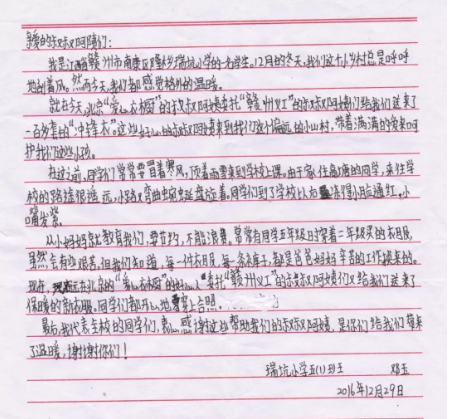 亲爱的叔叔阿姨们:
我是江西省赣州市南康区隆木乡瑞坑小学的一名学生。12月的冬天,我们这个小乡村总是呼呼
地刮着风。然而今天,我们都感觉格外的温暖。
就在今天,北京“爱心衣橱”的叔叔阿姨委托“赣州义工”的叔叔阿姨们给我们送来了
一百多套的“冲锋衣”。这些好心的叔叔阿姨来到我们这个偏远的小山村,带着满满的爱来呵
护我们这些小孩。
在这之前,同学们常常要冒着寒风,顶着雨雪来到学校上课。由于家住 的同学,来往学
校的路途很遥远,小路又弯曲蜿蜒盘旋着。同学们到了学校以后 冻得小脸通红,小
嘴发紫。
从小妈妈就教育我们,要节约,不能浪费。常常有同学五年级时穿着二年级买的衣服,
虽然会有些艰苦,但我们知道,每一件衣服,每一条裤子,都是爸爸妈妈辛苦的工作换来的。
现在,远在北京的“爱心衣橱”的好心人委托“赣州义工”的叔叔阿姨们又给我们送来了
保暖的新衣服。同学们都开心地穿上合照。
最后,我代表全校的同学们,衷心感谢这些帮助我们的叔叔阿姨,是你们给我们带来
了温暖,谢谢你们!
瑞坑小学五(1)班 邓玉
2016年12月29日